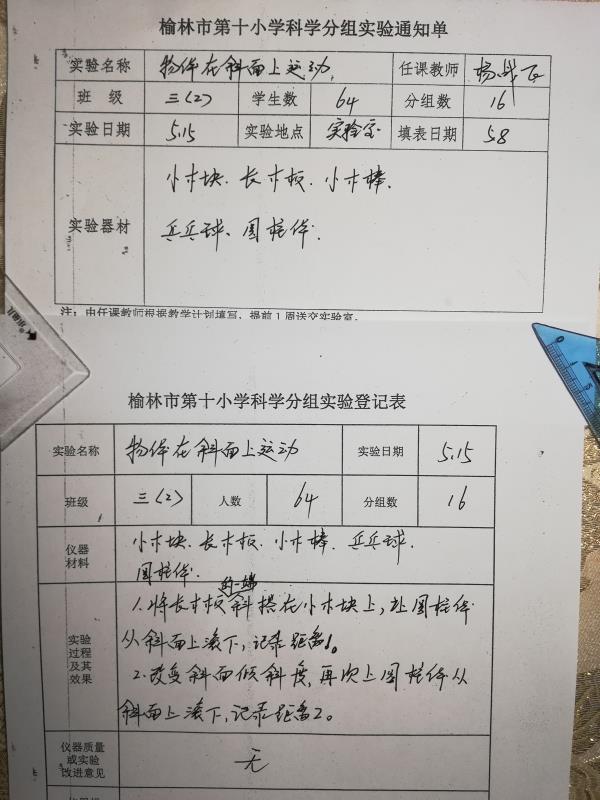 榆林市第十小学科学分组实验通知单
实验名称 物体在斜面上运动 任课教师
班 级 三(2) 学生数 64 分组数 16
实验日期 5.15 实验地点 实验室 填表日期 5.8
实验器材 小木块、长木板、小木棒、
乒乓球、圆柱体.
注:由任课教师根据教学计划填写,提前1周送交实验室。
榆林市第十小学科学分组实验登记表
实验名称 物体在斜面上运动 实验日期 5.15
班级 三(2) 人数 64 分组数 16
仪器材料 小木块、长木板、小木棒、乒乓球、
圆柱体.
实验过程及其效果 1.将长木板的一端斜搭在小木块上,让圆柱体
从斜面上滚下,记录距离1。
2.改变斜面倾斜度,再次上圆柱体从
斜面上滚下,记录距离2。
仪器质量或实验改进意见 无